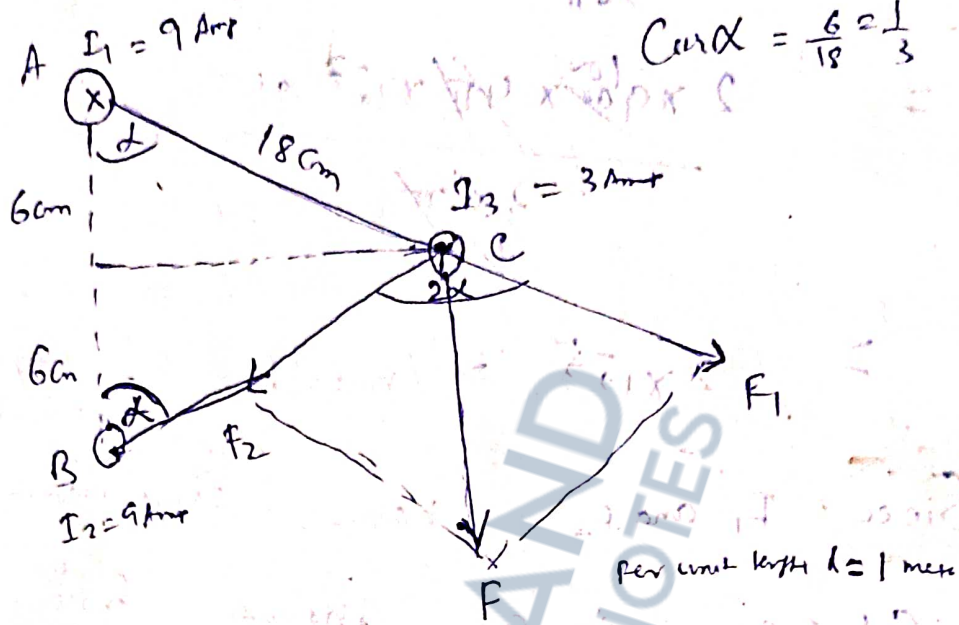 A I₁ = 9 Amp
Cosα = 6/18 = 1/3
x
α
18 Cm
6cm
I₃ = 3 Amp
C
2α
6Cm
α
F₁
B
F₂
I₂ = 9 Amp
AND
NOTES
per unit length l = 1 mete
F